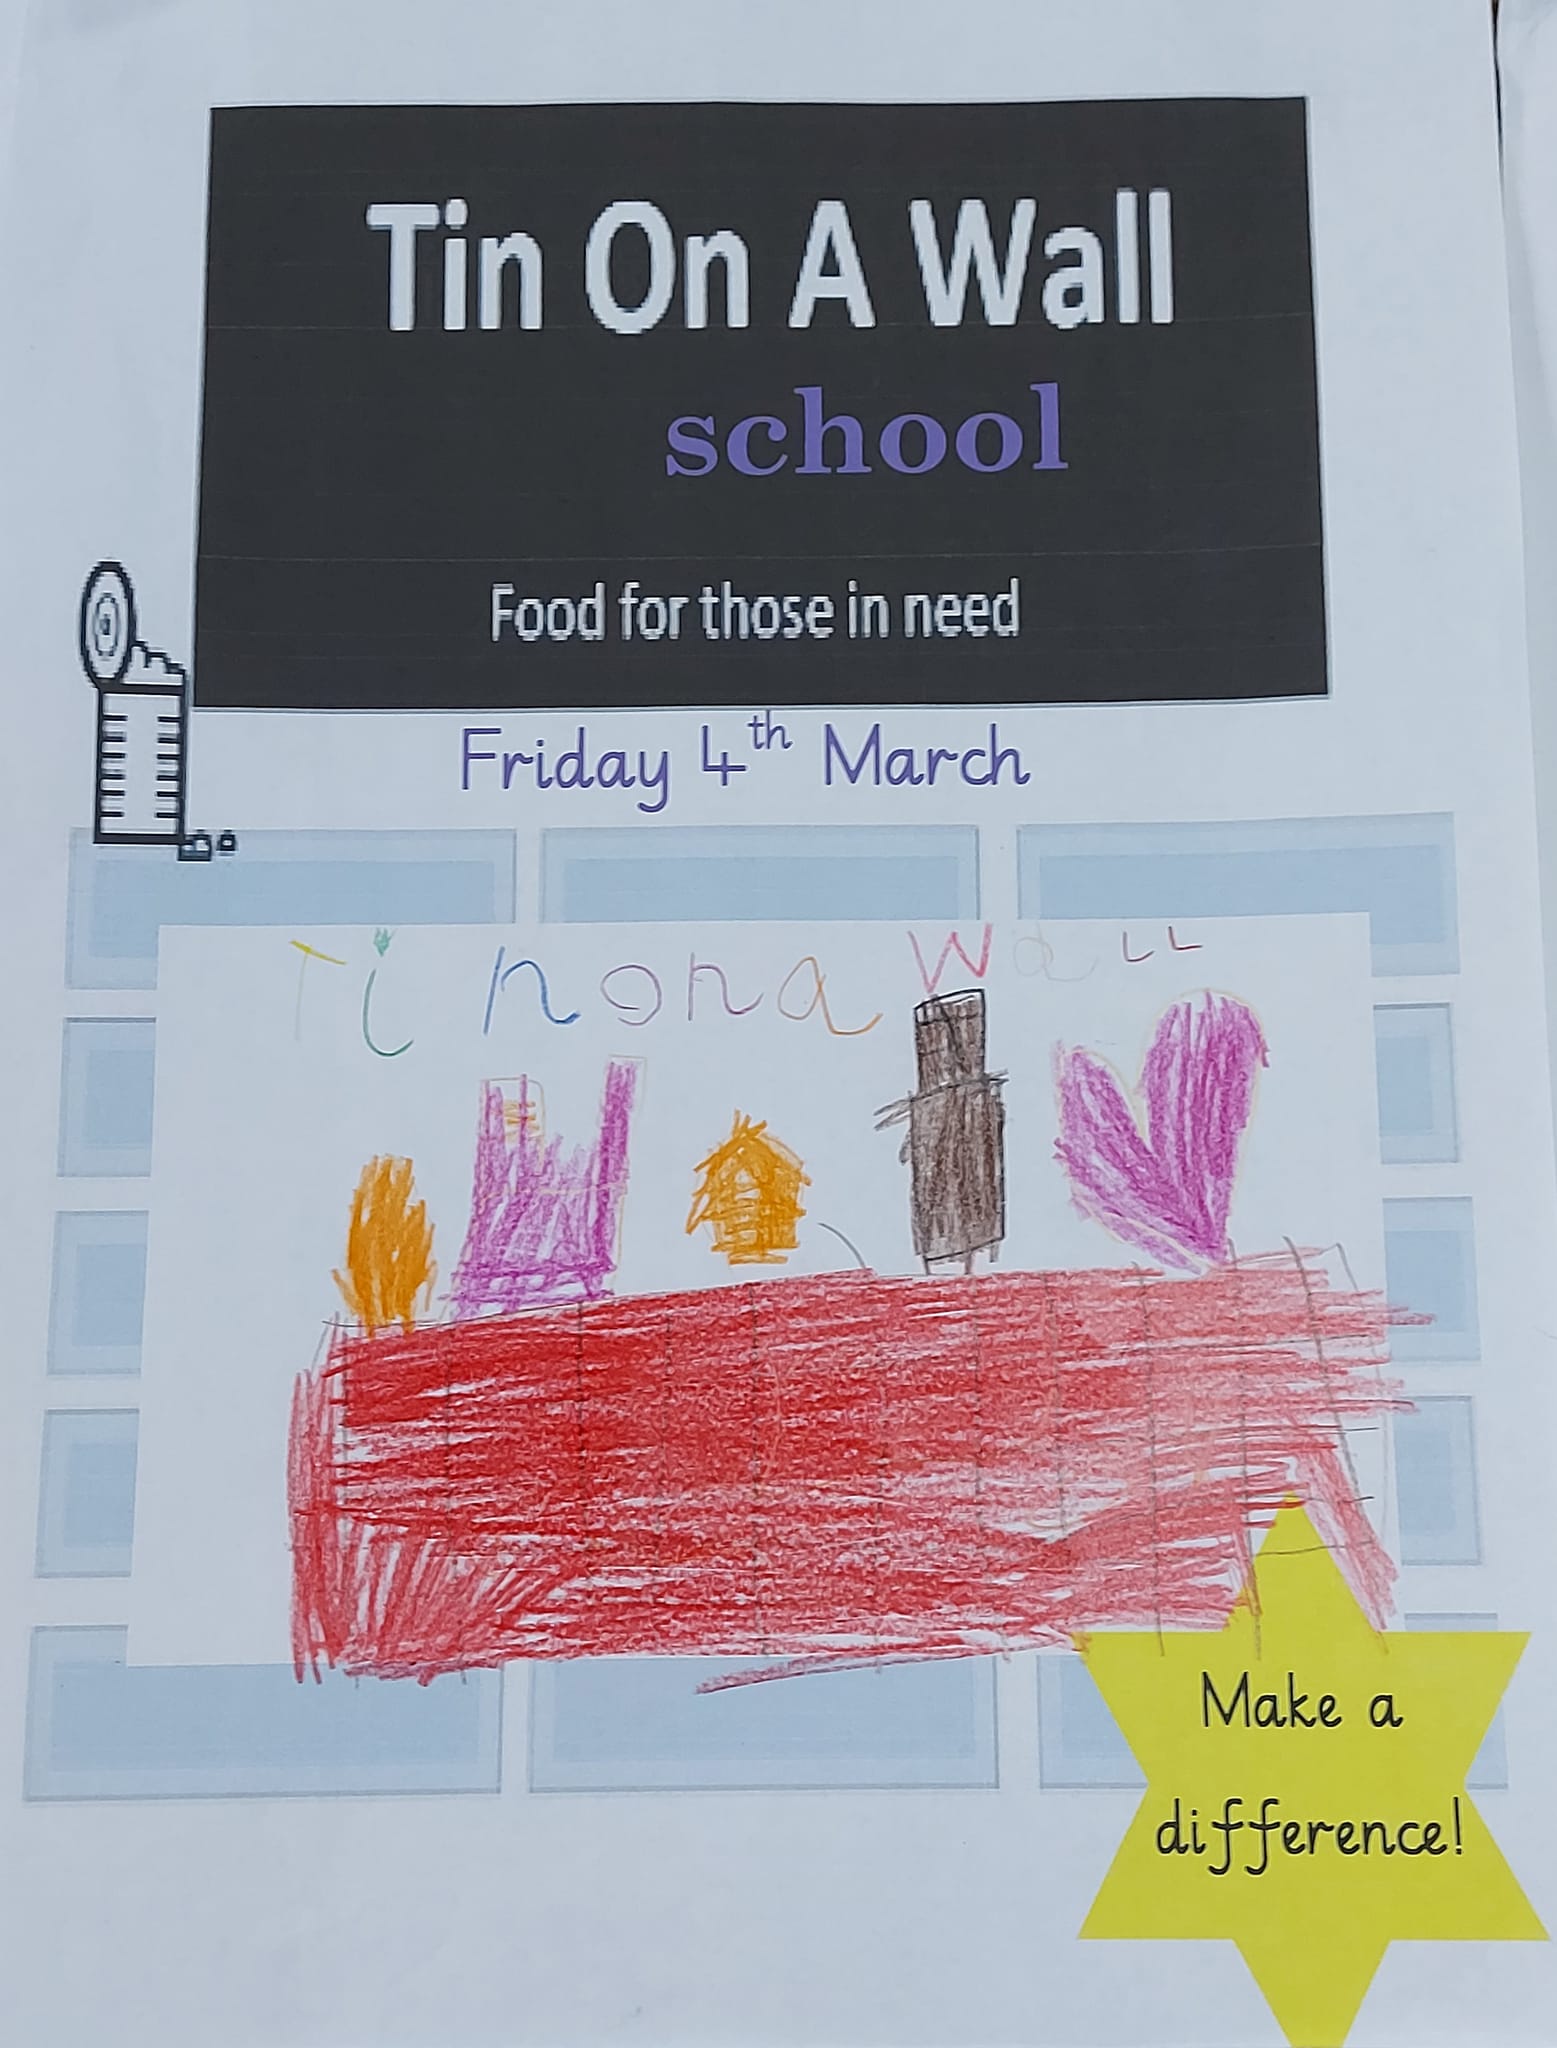 Tin On A Wall
school
Food for those in need
Friday 4th March
Tin on a Wall
Make a
difference!